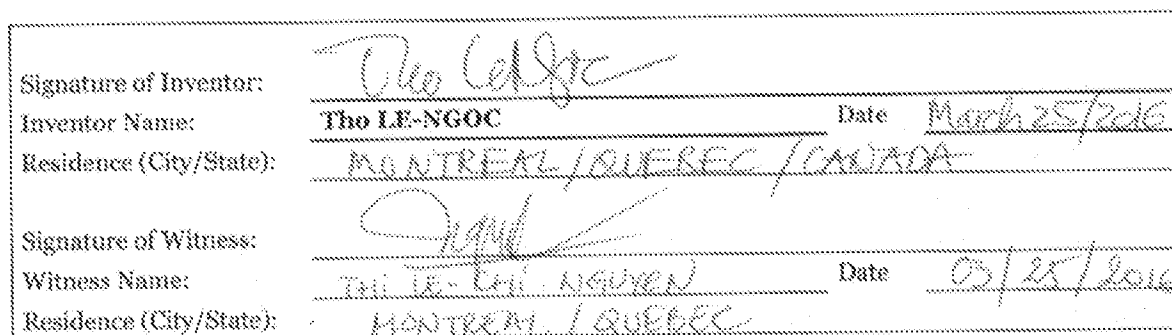 Signature of Inventor: Tho LeNgoc
Inventor Name: Tho LE-NGOC Date March 25/2016
Residence (City/State): MONTREAL/QUEBEC/CANADA
Signature of Witness:
Witness Name: THI LE- NGUYEN Date 03/25/2016
Residence (City/State): MONTREAL / QUEBEC